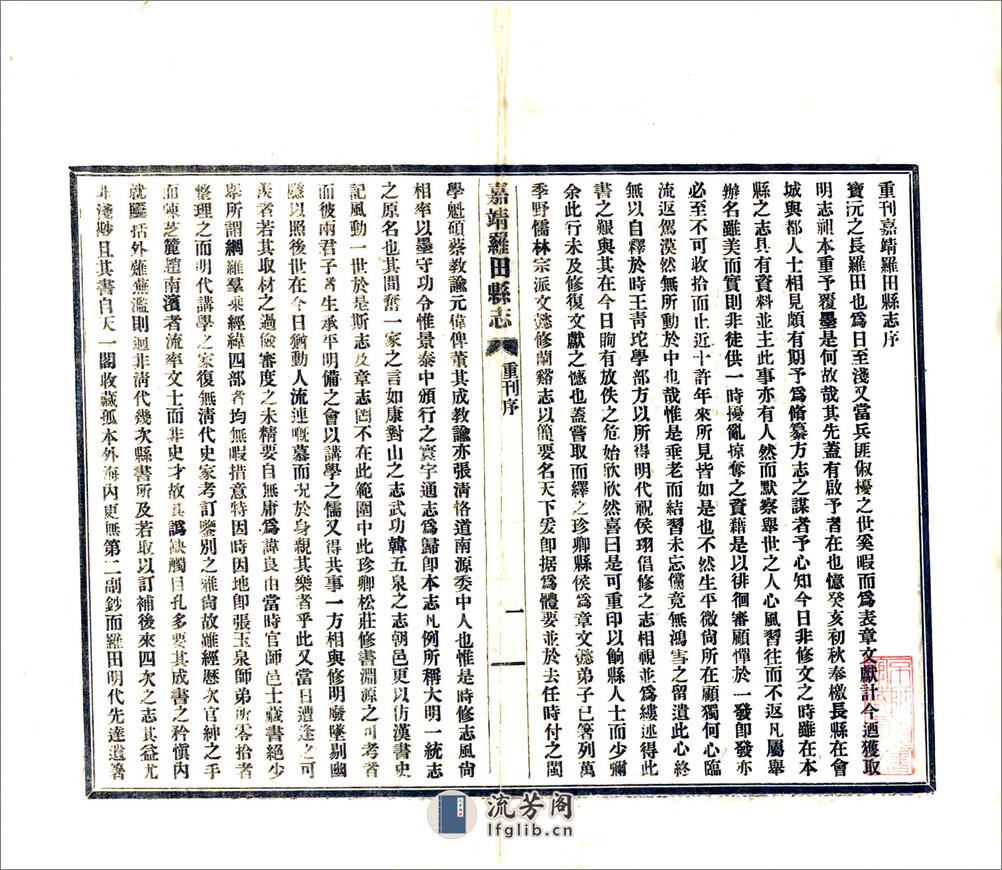 重刊嘉靖羅田縣志序
寶元之長羅田也爲日至淺又當兵匪俶擾之世奚暇而爲表章文獻計今迺獲取
明志祖本重予覆墨是何故哉其先蓋有啟予者在也憶癸亥初秋奉檄長縣在會
城與都人士相見頗有期予爲脩纂方志之謀者予心知今日非修文之時雖在本
縣之志具有資料並主此事亦有人然而默察舉世之人心風習往而不返凡屬舉
辦名雖美而實則非徒供一時擾亂掠奪之資藉是以徘徊審顧憚於一發卽發亦
必至不可收拾而止近十許年來所見皆如是也不然生平微尚所在顧獨何心臨
流返駕漠然無所動於中也哉惟是垂老而結習未忘儻竟無鴻雪之留遺此心終
無以自釋於時王青垞學部方以所得明代祝侯珝倡修之志相視並爲縷述得此
書之艱與其在今日眴有放佚之危始欣欣然喜曰是可重印以餉縣人士而少彌
余此行未及修復文獻之憾也蓋嘗取而繹之珍卿縣侯爲章文懿弟子已箸列萬
季野儒林宗派文懿修蘭谿志以簡要名天下爰卽据爲體要並於去任時付之閩
嘉靖羅田縣志 重刊序 一
學魁碩蔡教諭元偉俾董其成教諭亦張淸恪道南源委中人也惟是時修志風尙
相率以墨守功令惟景泰中頒行之寰宇通志爲歸卽本志凡例所稱大明一統志
之原名也其間奮一家之言如康對山之志武功韓五泉之志朝邑更以仿漢書史
記風動一世於是斯志及章志固不在此範圍中此珍卿松莊修書淵源之可考者
而彼兩君子者生承平明備之會以講學之儒又得共事一方相與修明廢墜剔國
隱以照後世在今日猶動人流連嘅慕而況於身親其樂者乎此又當日遭逢之可
羨者若其取材之過儉審度之未精要自無庸爲諱良由當時官師邑士藏書絕少
舉所謂網羅羣乘經緯四部者均無暇措意特因時因地卽張玉泉師弟所零拾者
整理之而明代講學之家復無淸代史家考訂鑒別之雅尙故雖經歷次官紳之手
而陳芝麓趙南濱者流率文士而非史才故其譌缺觸目孔多要其成書之矜愼內
就櫽括外雖蕪濫則迥非淸代幾次縣書所及若取以訂補後來四次之志其益尤
非淺尠且其書自天一閣收藏孤本外海內更無第二副鈔而羅田明代先達遺箸
流芳阁
lfglib.cn